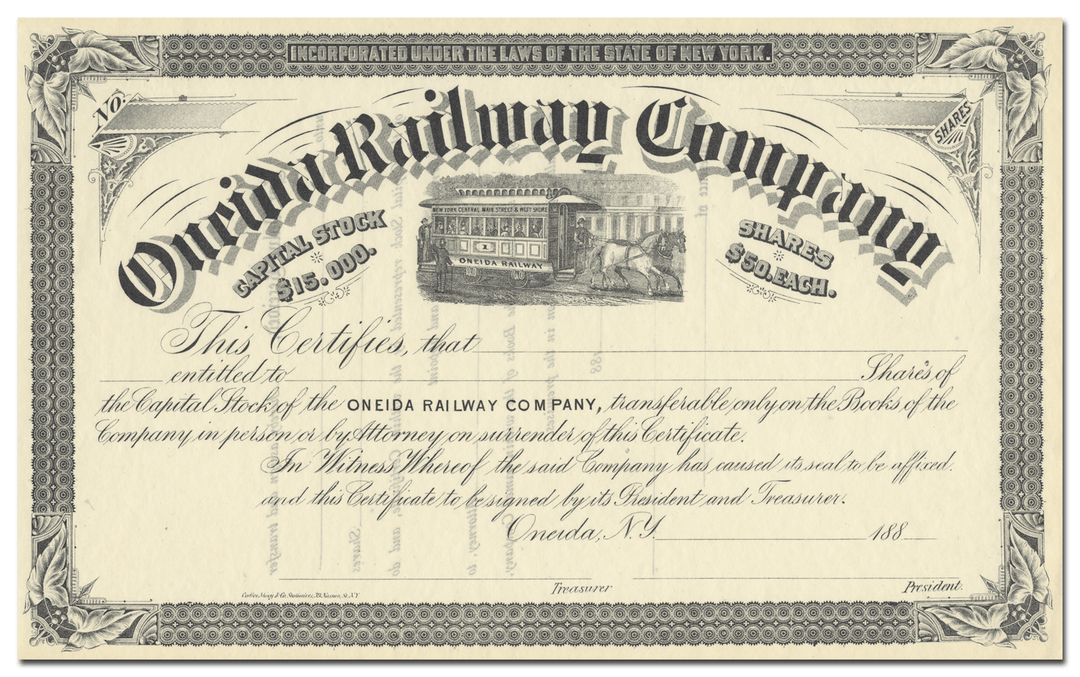 INCORPORATED UNDER THE LAWS OF THE STATE OF NEW YORK.
No.
SHARES
Oneida Railway Company
CAPITAL STOCK
$15.000.
SHARES
$50.EACH.
NEW YORK CENTRAL MAIN STREET & WEST SHORE
1
ONEIDA RAILWAY
This Certifies, that
entitled to Shares of
the Capital Stock of the ONEIDA RAILWAY COMPANY, transferable only on the Books of the
Company in person or by Attorney on surrender of this Certificate.
In Witness Whereof the said Company has caused its seal to be affixed
and this Certificate to be signed by its President and Treasurer.
Oneida, N.Y. 188
Treasurer President.